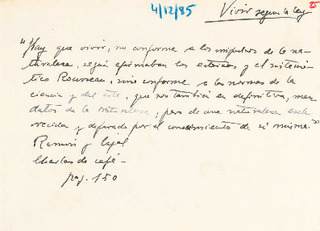 4/12/85
Vivir según la ley
"Hay que vivir, no conforme a los impulsos de la na-
turaleza, según afirmaban los estoicos y el
Rousseau, sino conforme a las normas de la
ciencia y del arte, que son también en definitiva, man-
datos de la naturaleza; pero de una naturaleza escla-
recida y depurada por el conocimiento de sí misma."
Ramón y Cajal
Charlas de café -
pág. 150